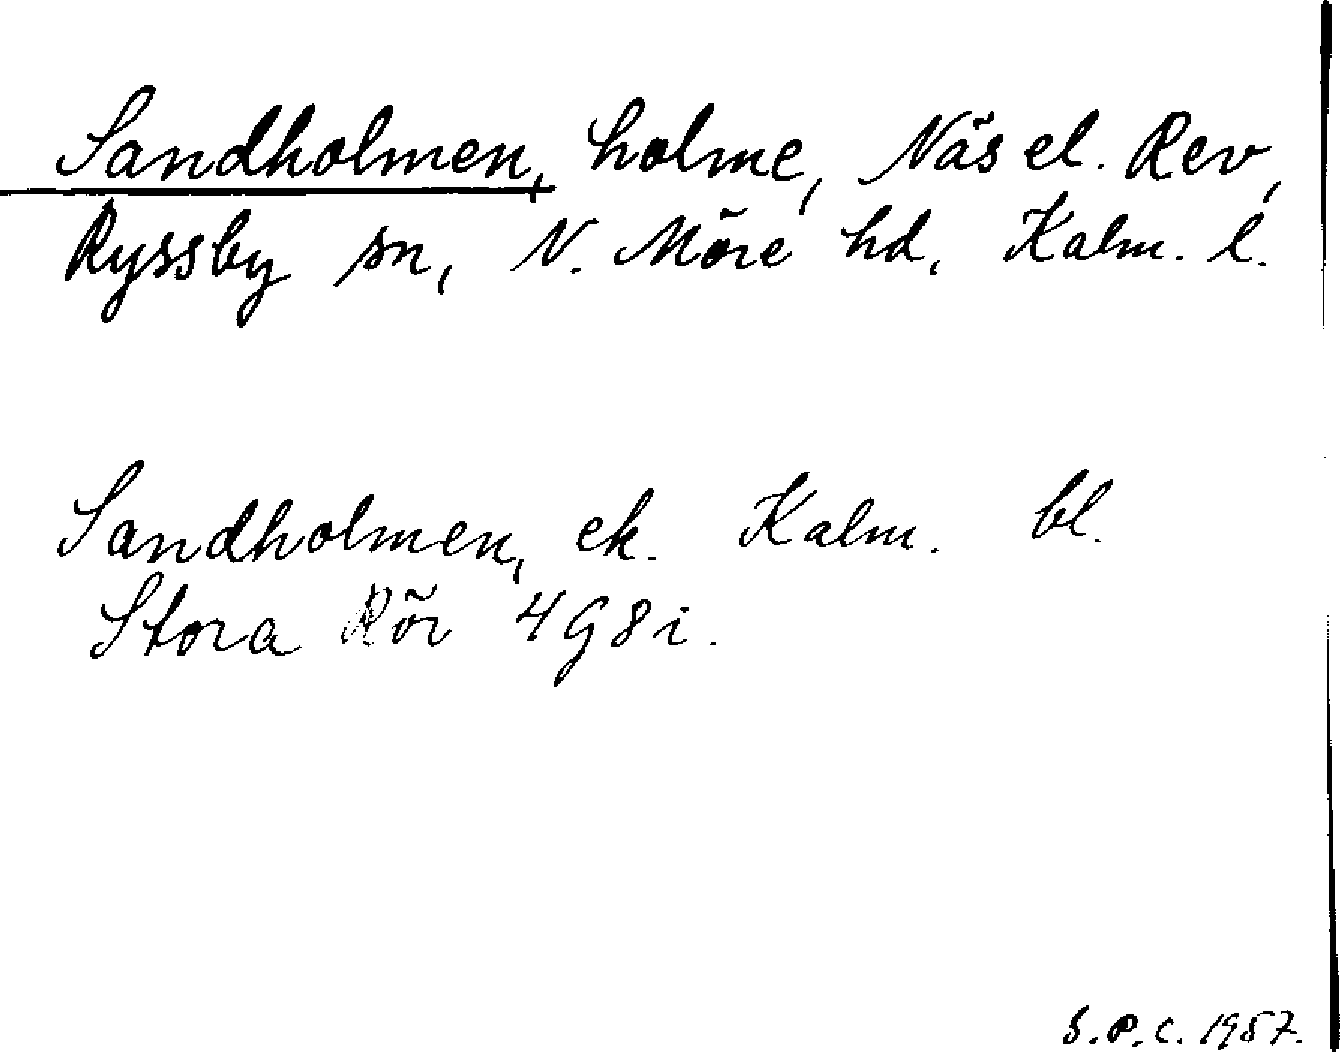 Sandholmen, holme, Näs el. Rev,
Ryssby sn, N. Möre hd, Kalm. l.
Sandholmen, ek. Kalm. bl.
Stora Rör 4G8i.
S.P.C. 1957.